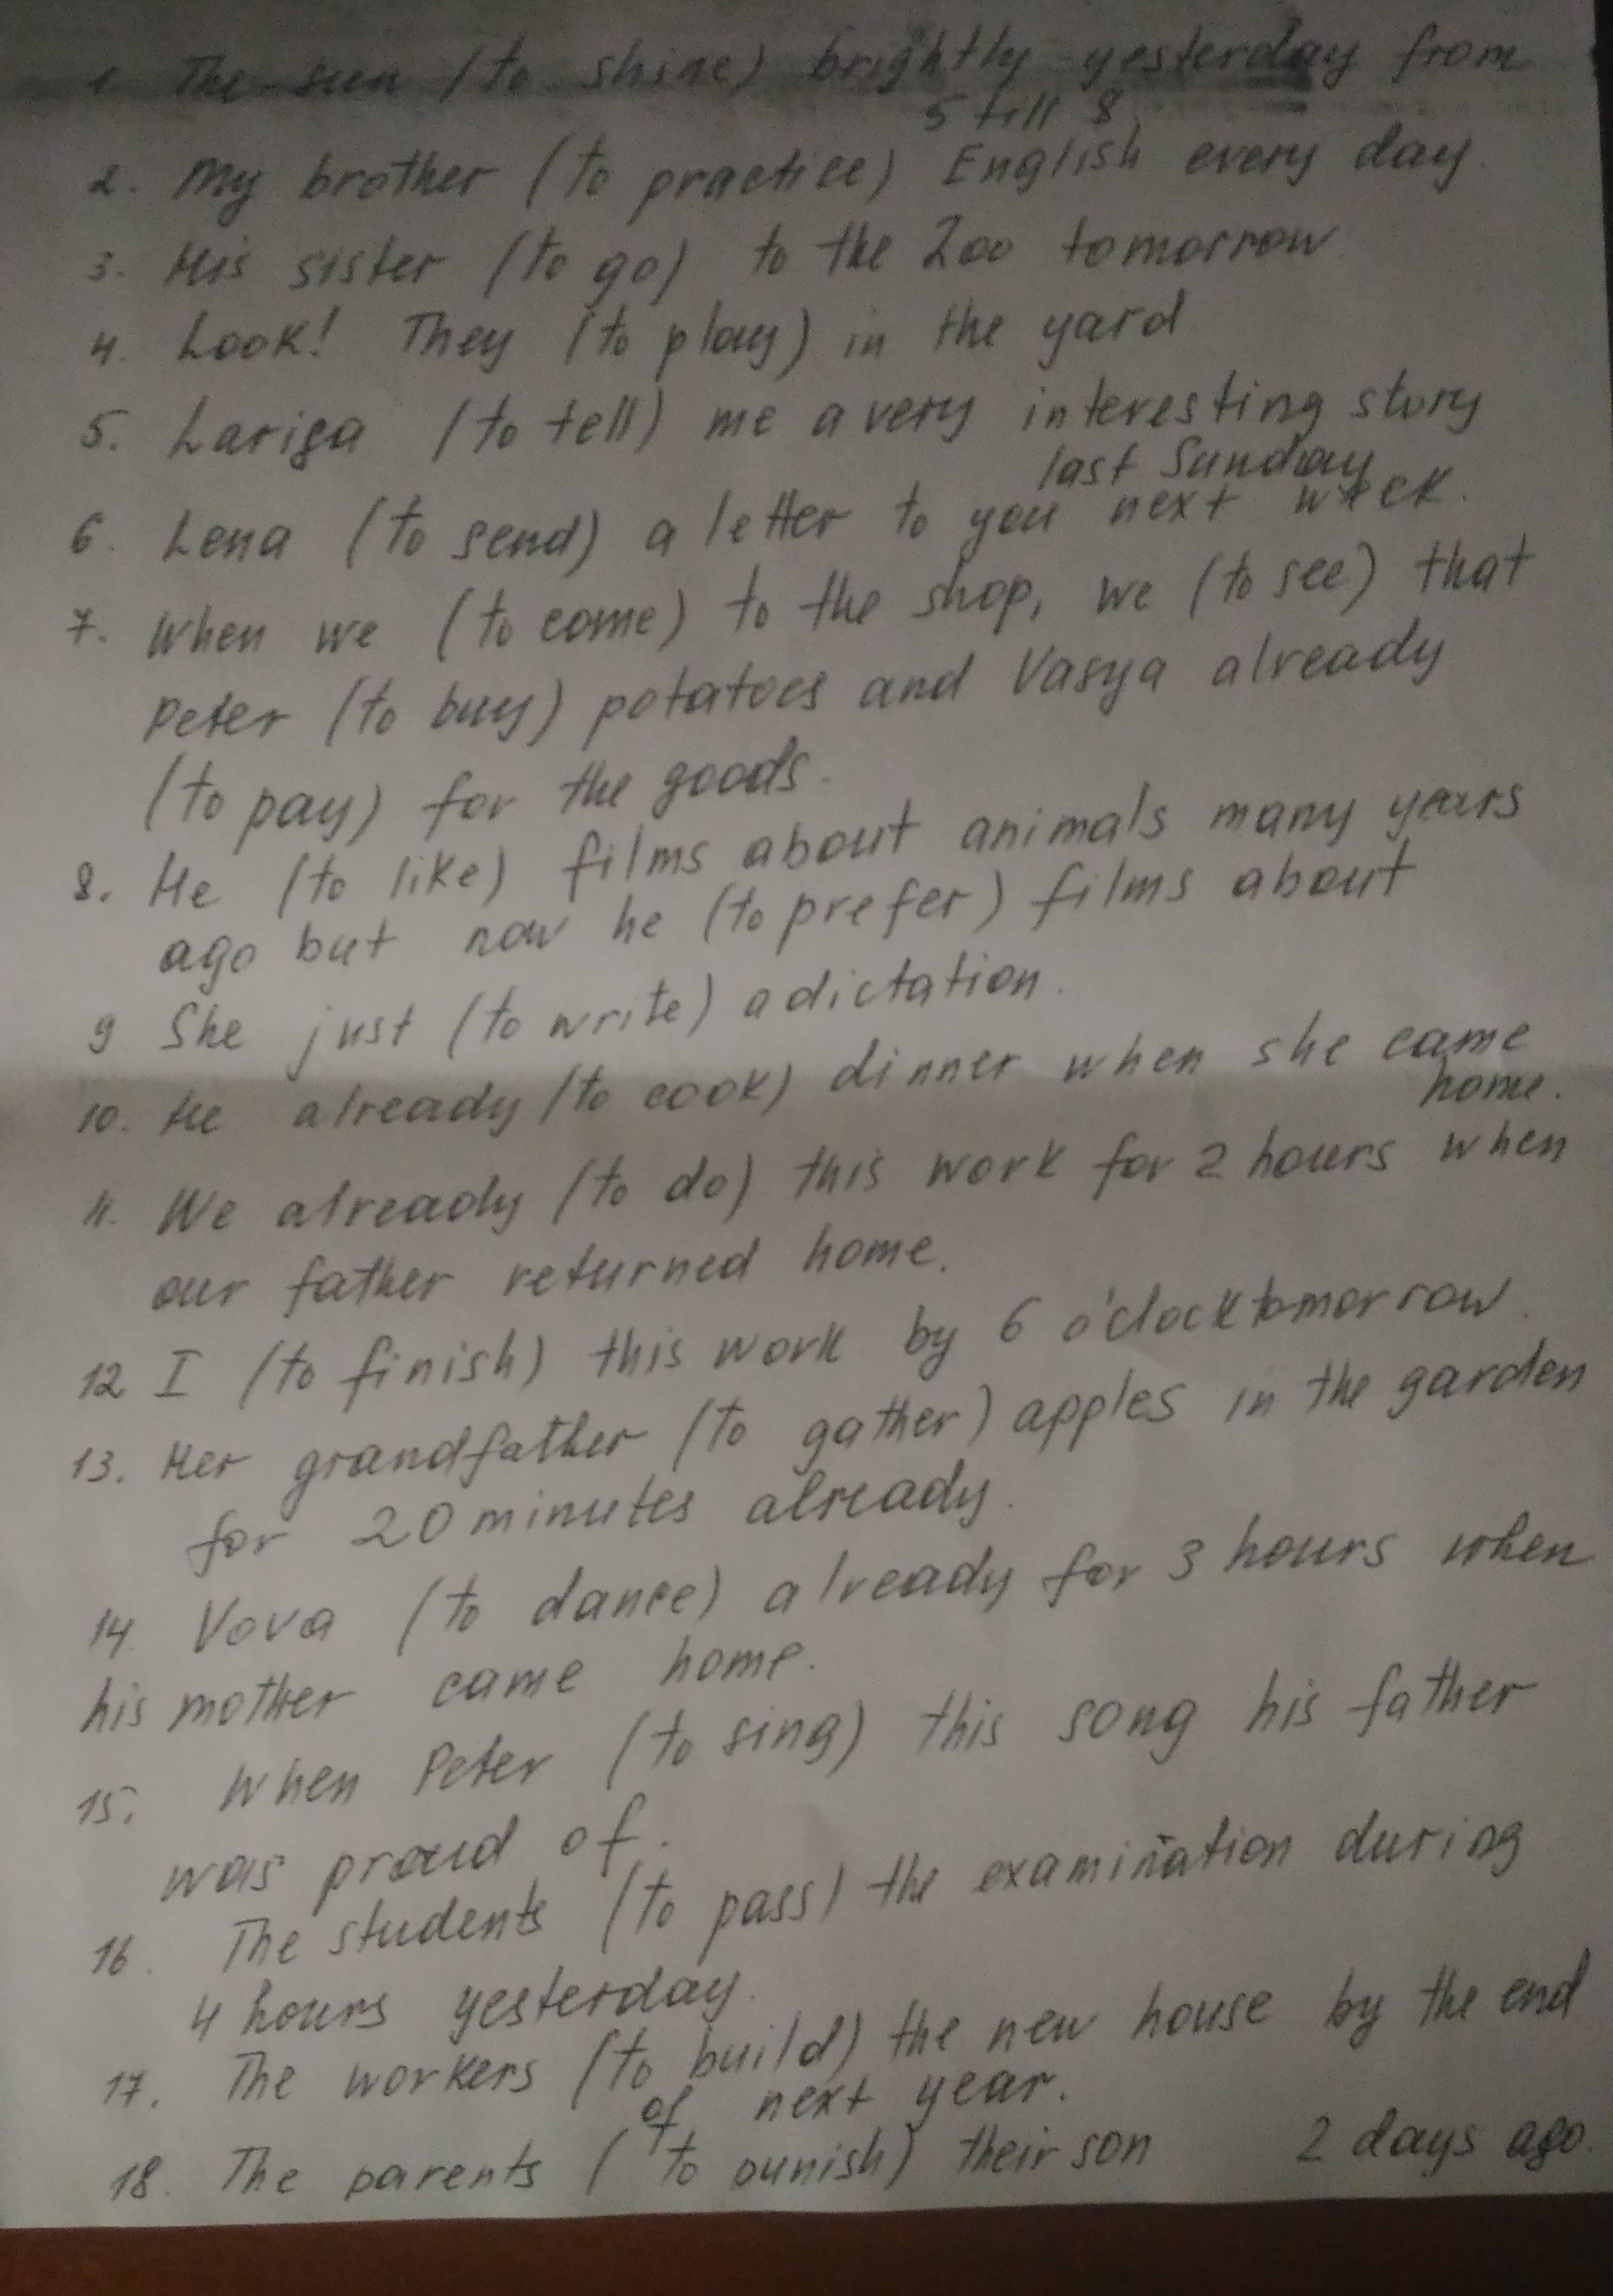 1. The sun (to shine) brightly yesterday from
5 till 8
2. My brother (to practice) English every day.
3. His sister (to go) to the Zoo tomorrow.
4. Look! They (to play) in the yard
5. Larisa (to tell) me a very interesting story
last Sunday
6. Lena (to send) a letter to you next week.
7. When we (to come) to the shop, we (to see) that
Peter (to buy) potatoes and Vasya already
(to pay) for the goods.
8. He (to like) films about animals many years
ago but now he (to prefer) films about
9 She just (to write) a dictation.
10. He already (to cook) dinner when she came
home.
11. We already (to do) this work for 2 hours when
our father returned home.
12 I (to finish) this work by 6 o'clock tomorrow.
13. Her grandfather (to gather) apples in the garden
for 20 minutes already.
14. Vova (to dance) already for 3 hours when
his mother came home.
15. When Peter (to sing) this song his father
was proud of.
16. The students (to pass) the examination during
4 hours yesterday.
17. The workers (to build) the new house by the end
of next year.
18. The parents (to punish) their son 2 days ago.